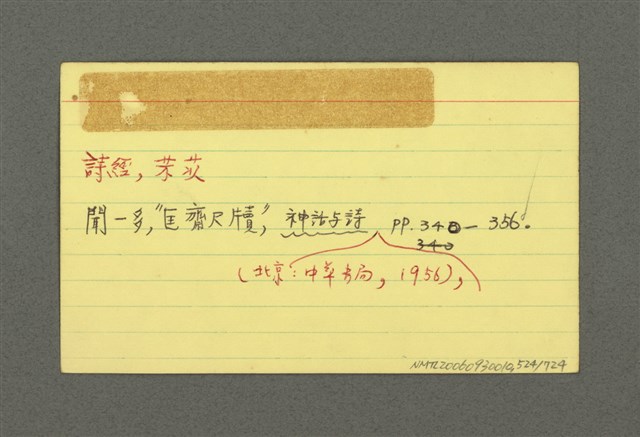 詩經, 芣苡
聞一多, "匡齋尺牘", 神話与詩, pp. 340—356.
340
(北京:中華書局, 1956),
NMTL20060930010,524/724